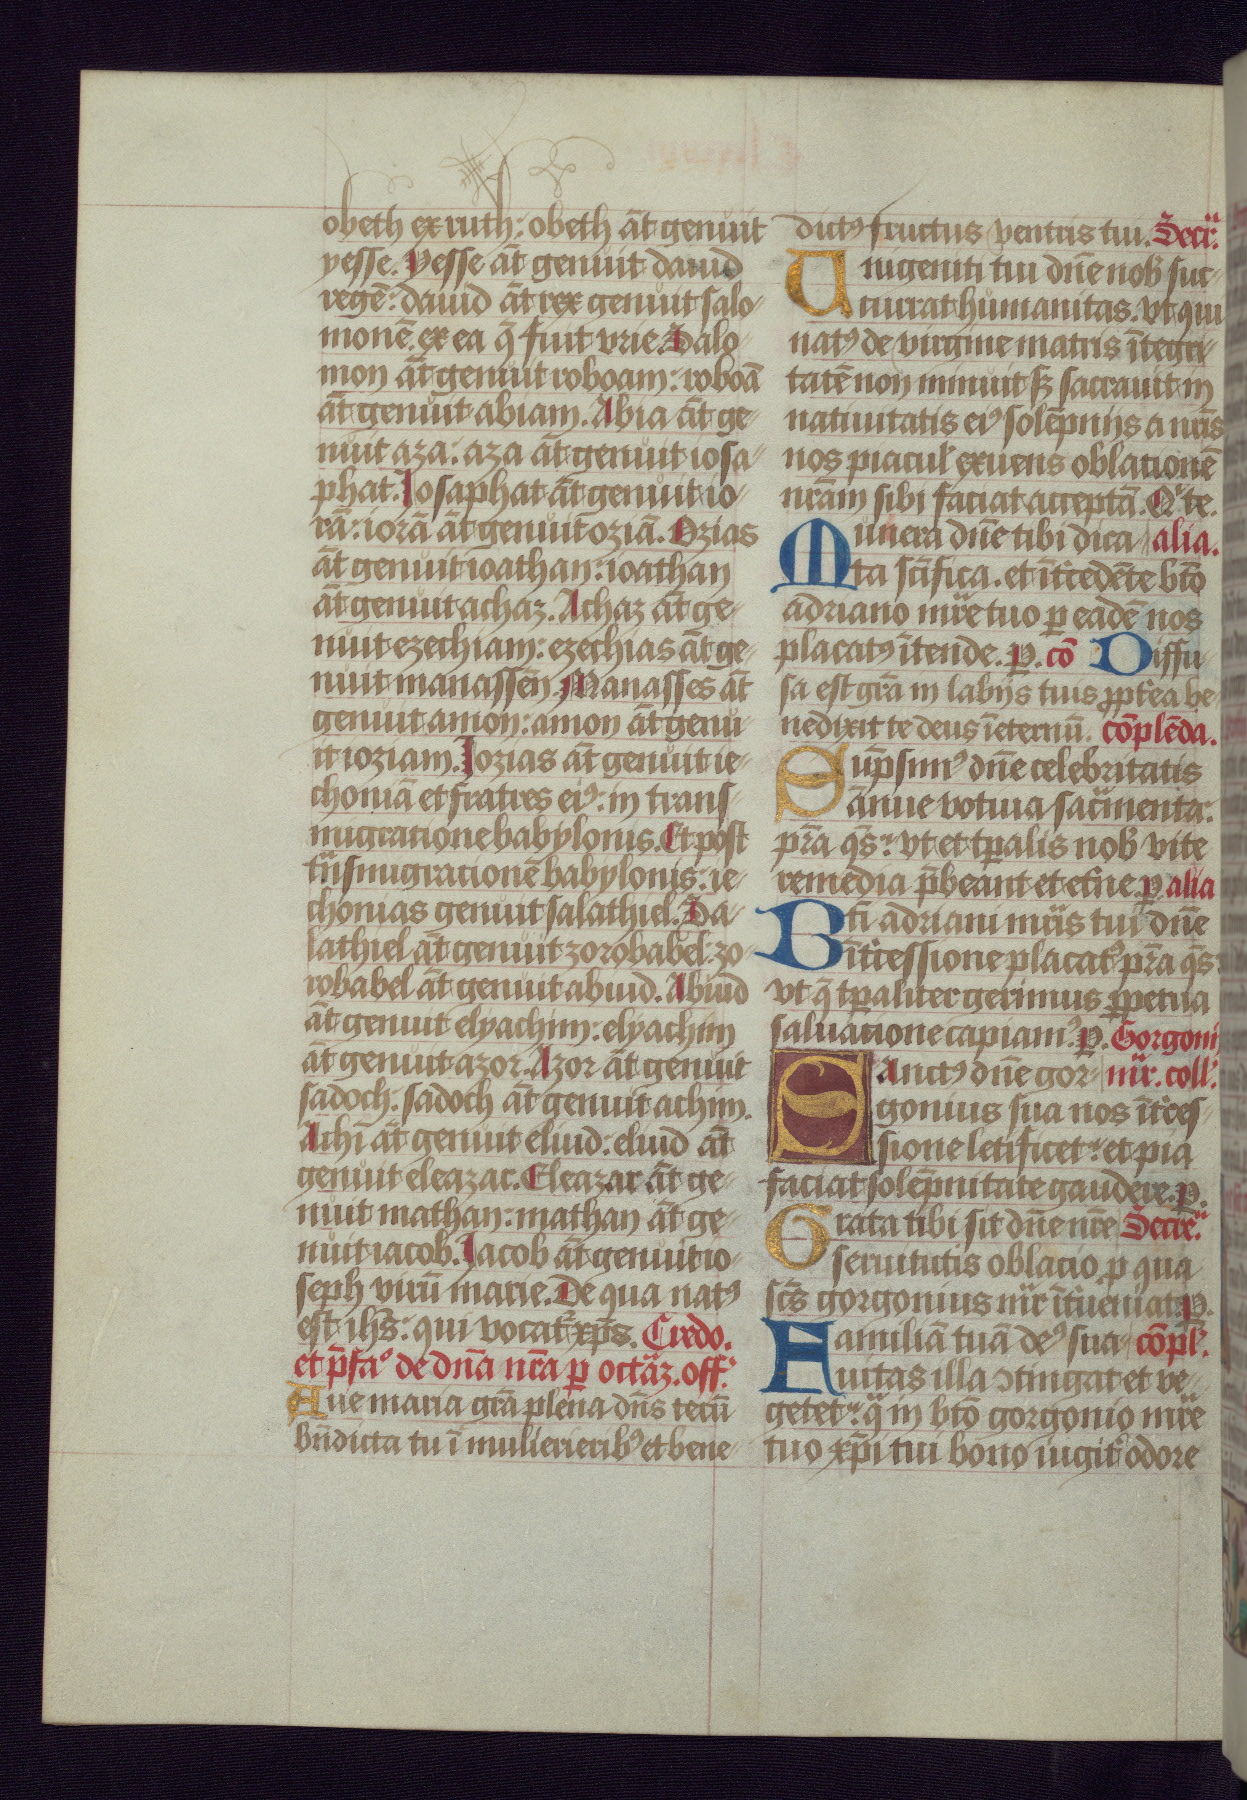 obeth ex ruth: obeth āt genuit
yesse. Yesse āt genuit dauid
regē: dauid āt rex genuit salo-
monē. ex ea q̄ fuit vrie. Salo-
mon āt genuit roboam: roboā
āt genuit abiam. Abia āt ge-
nuit aza: aza āt genuit iosa-
phat. Iosaphat āt genuit io-
rā: iorā āt genuit oziā. Ozias
āt genuit ioathan: ioathan
āt genuit achaz. Achaz āt ge-
nuit ezechiam: ezechias āt ge-
nuit manassen. Manasses āt
genuit amon: amon āt genu-
it ioziam. Iozias āt genuit ie-
choniā et fratres eiꝰ: in trans-
migratione babylonis. Et post
trāsmigrationē babylonis: ie-
chonias genuit salathiel. Sa-
lathiel āt genuit zorobabel: zo-
robabel āt genuit abiud. Abiud
āt genuit elyachim: elyachim
āt genuit azor. Azor āt genuit
sadoch: sadoch āt genuit achim.
Achī āt genuit eliud: eliud āt
genuit eleazar. Eleazar āt ge-
nuit mathan: mathan āt ge-
nuit iacob. Iacob āt genuit io-
seph virū marie. De qua natꝰ
est ihs̄: qui vocat᷑ xp̄s. Credo.
et p̄fa° de dn̄a nr̄a p octāz. off.
Aue maria gr̄a plena dn̄s tecū
bn̄dicta tu ī mulierieribꝰ et bene-
dictꝰ fructus ventris tui. Secr̄.
Unigeniti tui dn̄e nob̄ suc-
currat humanitas. vt qui
natꝰ de virgine matris ītegri-
tatē non minuit sꝫ sacrauit in
natiuitatis eiꝰ solēpniis a nr̄is
nos piacul̄ exuens oblationē
nr̄am sibi faciat acceptā. Q̄ te.
Munera dn̄e tibi dica- alia.
ta scīfica. et īt̄cedēte bt̄o
adriano mr̄e tuo p eadē nos
placatꝰ ītende. P. cō Diffu-
sa est gr̄a in labiis tuis ꝓpt̄ea be-
nedixit te deus īeternū. cōplēda.
Sūpsimꝰ dn̄e celebritatis
ānue votiua sacr̄menta:
pr̄a q̄s: vt et tp̄alis nob̄ vite
remedia p̄beant et et̄ne. p alia
Bt̄i adriani mr̄is tui dn̄e
īt̄cessione placatꝰ pr̄a q̄s:
vt q̄ tp̄aliter gerimus ꝑpetua
saluatione capiamꝰ. P. Gorgonij
Sanctꝰ dn̄e gor- mr̄. coll̄.
gonius sua nos īt̄ces-
sione letificet: et pia
faciat solēpnitate gaudere. p.
Grata tibi sit dn̄e nr̄e Secre.
seruitutis oblacio p qua
scs̄ gorgonius mr̄ īt̄ueniat. P.
Familiā tuā deꝰ sua- cōpl̄.
uitas illa ↄtingat et ve-
getet: q̄ in bt̄o gorgonio mr̄e
tuo xp̄i tui bono iugit̄ odore